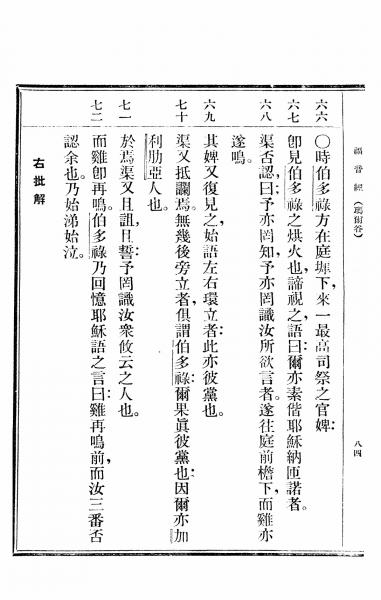 福音經（瑪爾谷） 八四
六六 〇時伯多祿方在庭墀下，來一最高司祭之官婢：
六七 卽見伯多祿之烘火也，諦視之，語曰：爾亦素偕耶穌納匝諾者。
六八 渠否認，曰：予亦罔知，予亦罔識汝所欲言者。遂往庭前檐下，而雞亦
遂鳴。
六九 其婢又復見之，始語左右環立者：此亦彼黨也。
七十 渠又抵讕焉。無幾後旁立者，俱謂伯多祿：爾果眞彼黨也，因爾亦加
利肋亞人也。
七一 於焉渠又且詛，且誓：予罔識汝衆攸云之人也。
七二 而雞卽再鳴，伯多祿乃回憶耶穌語之言曰：雞再鳴前，而汝三番否
認余也。乃始涕始泣。
右批解